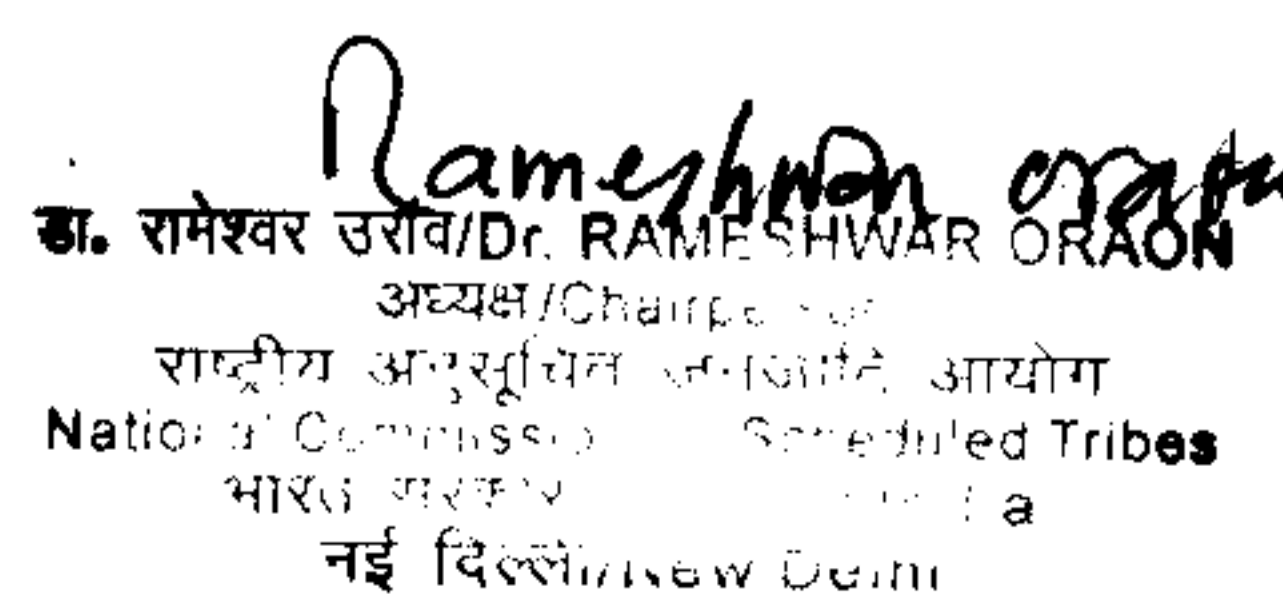 Rameshwar Oraon
डा. रामेश्वर उराँव/Dr. RAMESHWAR ORAON
अध्यक्ष/Chairperson
राष्ट्रीय अनुसूचित जनजाति आयोग
National Commission Scheduled Tribes
भारत सरकार
नई दिल्ली/New Delhi